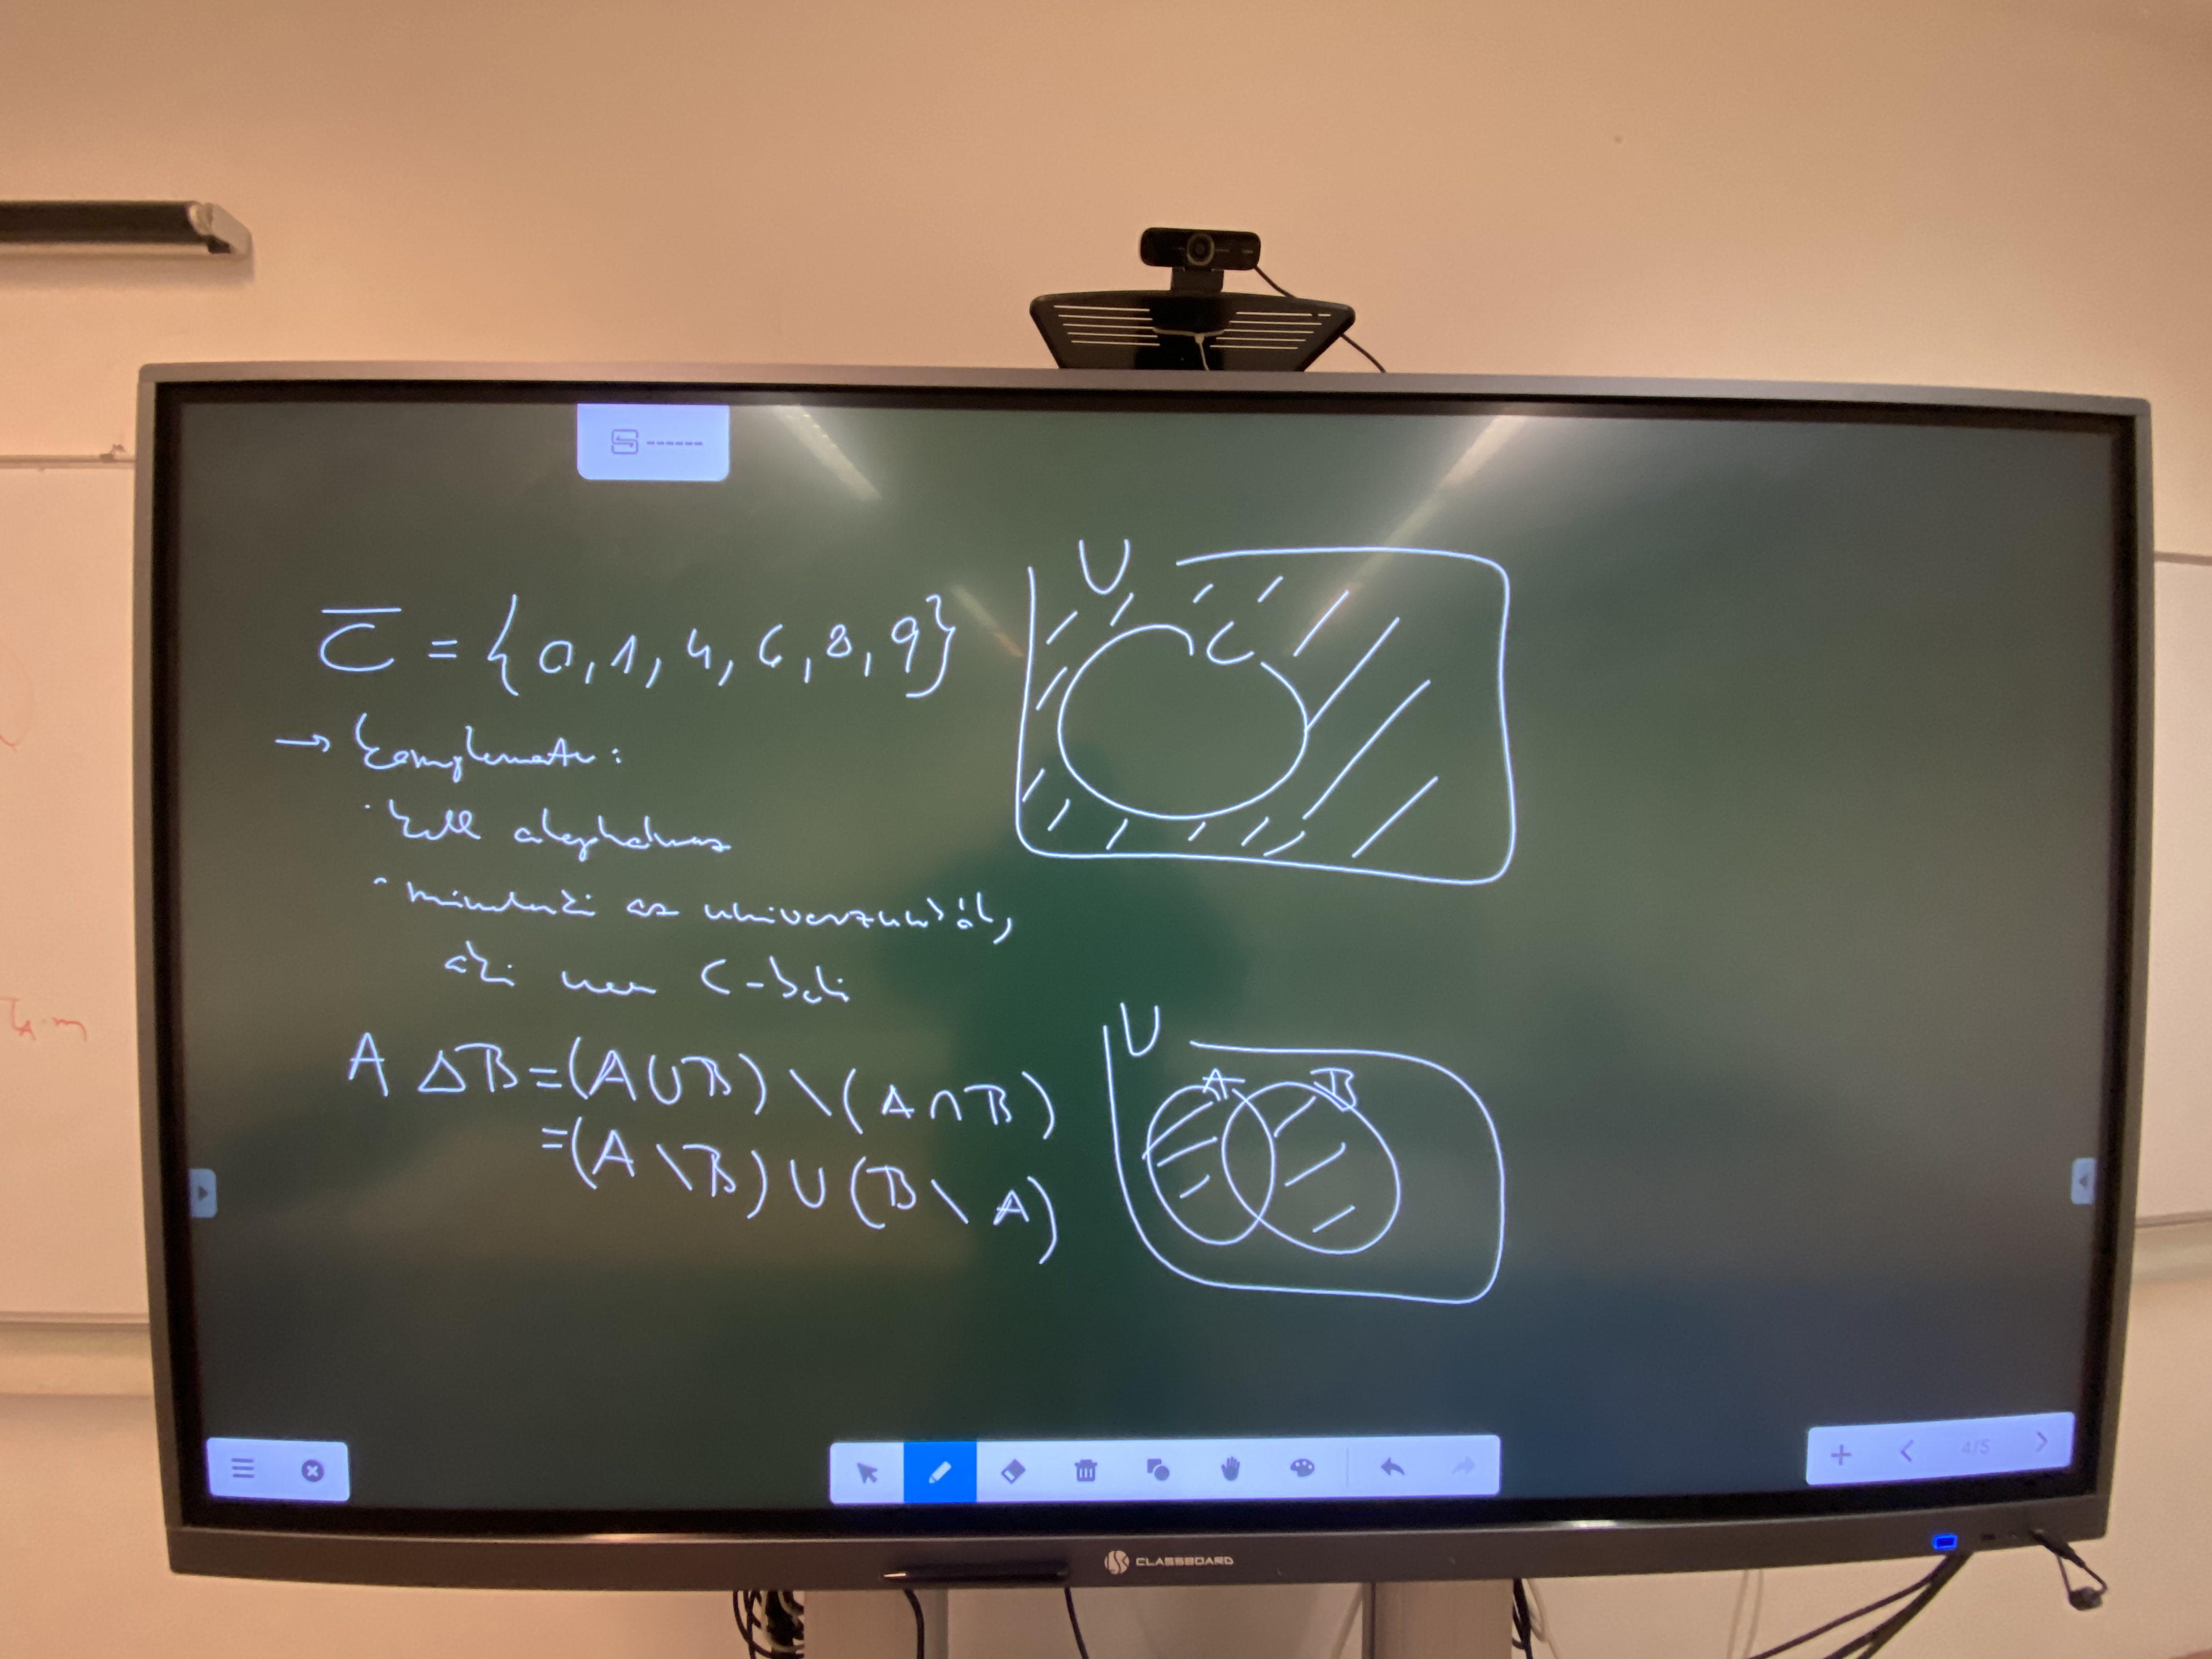 C̅ = {0, 1, 4, 6, 8, 9}
→ komplementer:
· kell alaphalmaz
· mindenki az univerzumból,
aki nem C-beli
A Δ B = (A ∪ B) \ (A ∩ B)
= (A \ B) ∪ (B \ A)
U
C
U
A B
4/5
CLASSBOARD